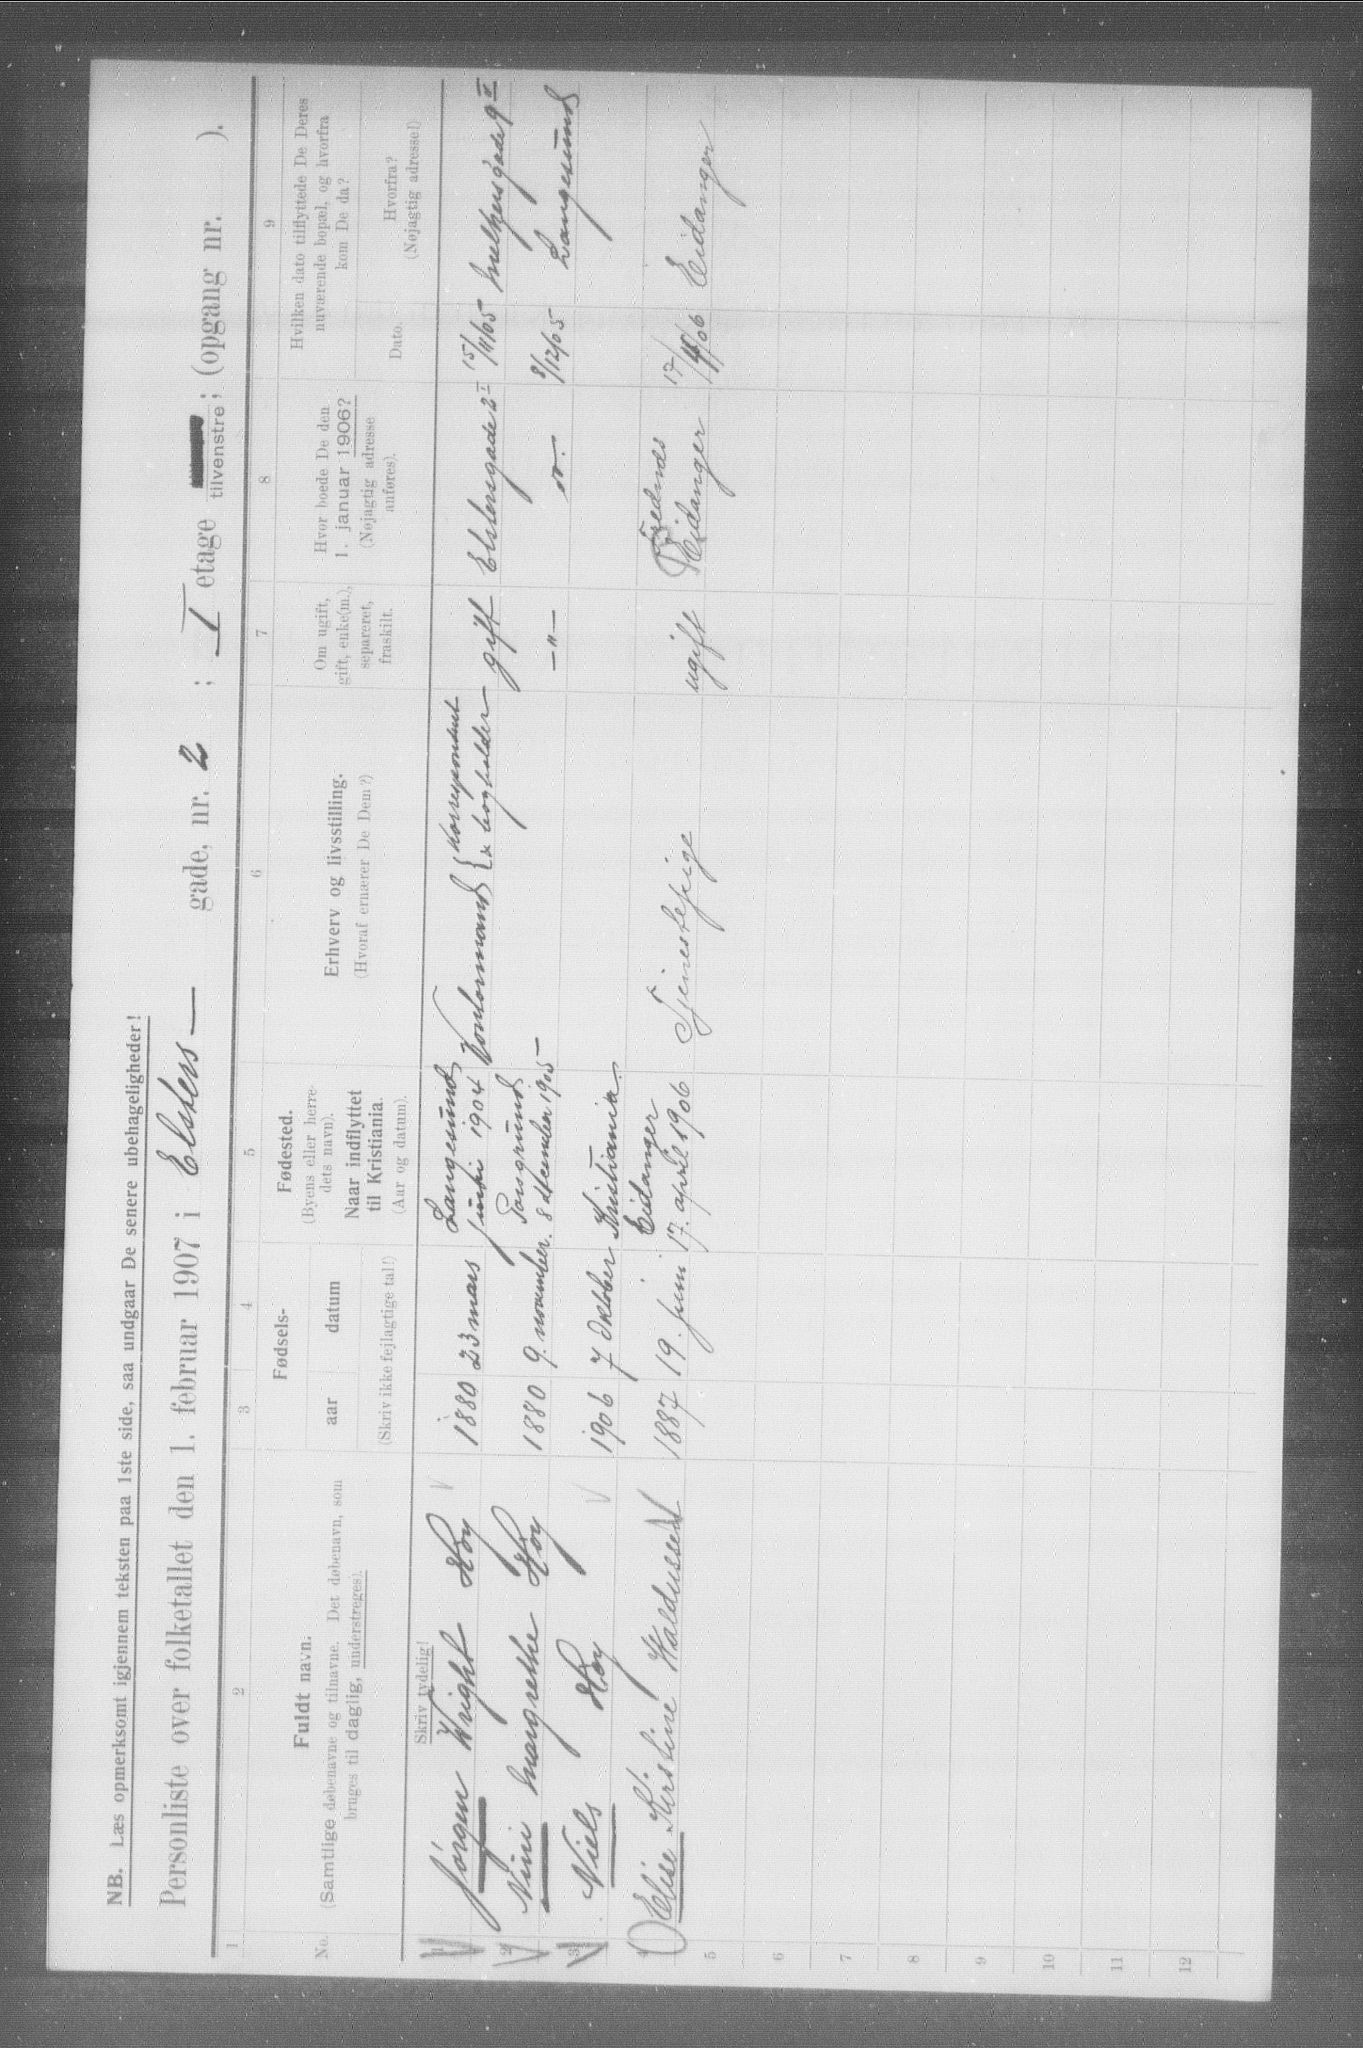 NB. Læs opmerksomt igjennem teksten paa 1ste side, saa undgaar De senere ubehageligheder!
Personliste over folketallet den 1. februar 1907 i Elsters— gade, nr. 2 ; I etage tilvenstre; (opgang nr. ).
1 2 3 4 5 6 7 8 9
No.
Fuldt navn.
(Samtlige døbenavne og tilnavne. Det døbenavn, som
bruges til daglig, understreges).
Fødsels-
aar datum
(Skriv ikke fejlagtige tal!)
Fødested.
(Byens eller herre-
dets navn).
Naar indflyttet
til Kristiania.
(Aar og datum).
Erhverv og livsstilling.
(Hvoraf ernærer De Dem?)
Om ugift,
gift, enke(m.),
separeret,
fraskilt.
Hvor boede De den
1. januar 1906?
(Nøjagtig adresse
anføres).
Hvilken dato tilflyttede De Deres
nuværende bopæl, og hvorfra
kom De da?
Dato.
Hvorfra?
(Nøjagtig adresse!)
Skriv tydelig!
1 Jørgen Wright Høy 1880 23 mars Langesund juni 1904 Kontormand { Korrespondent & bogholder gift Elstersgade 2 I 15/11/05 Meltzersgade 9 II
2 Nini Margrethe Høy 1880 9. november. Porsgrund 8 december 1905 — —"— 8/12/05 Langesund
3 Niels Høy 1906 7 Oktober Kristiania.
4 Elise Kirstine Haldussen 1887 19. juni Eidanger 17. april 1906 Tjenestepige ugift Eidanger 17/4/06 Eidanger
5
6
7
8
9
10
11
12